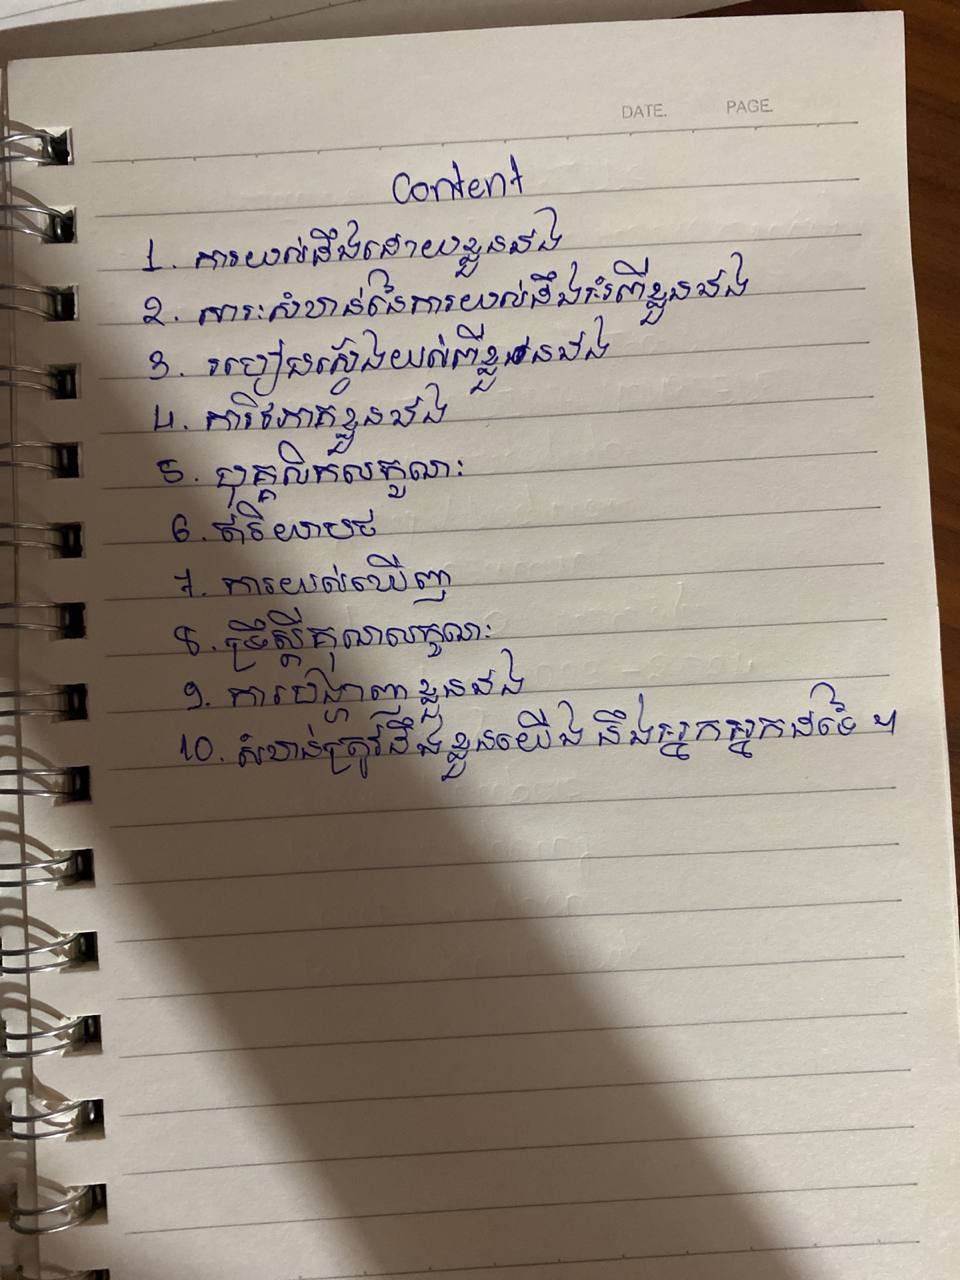 DATE. PAGE.
Content
1. ការយល់ដឹងដោយខ្លួនឯង
2. សារៈសំខាន់នៃការយល់ដឹងអំពីខ្លួនឯង
3. របៀបស្វែងយល់ពីខ្លួនឯង
4. ការវិភាគខ្លួនឯង
5. បុគ្គលិកលក្ខណៈ
6. ឥរិយាបថ
7. ការយល់ឃើញ
8. ទ្រឹស្តីគុណលក្ខណៈ
9. ការបង្ហាញខ្លួនឯង
10. សំខាន់ត្រូវដឹងខ្លួនយើង នឹងអ្នកអ្នកដទៃ ។